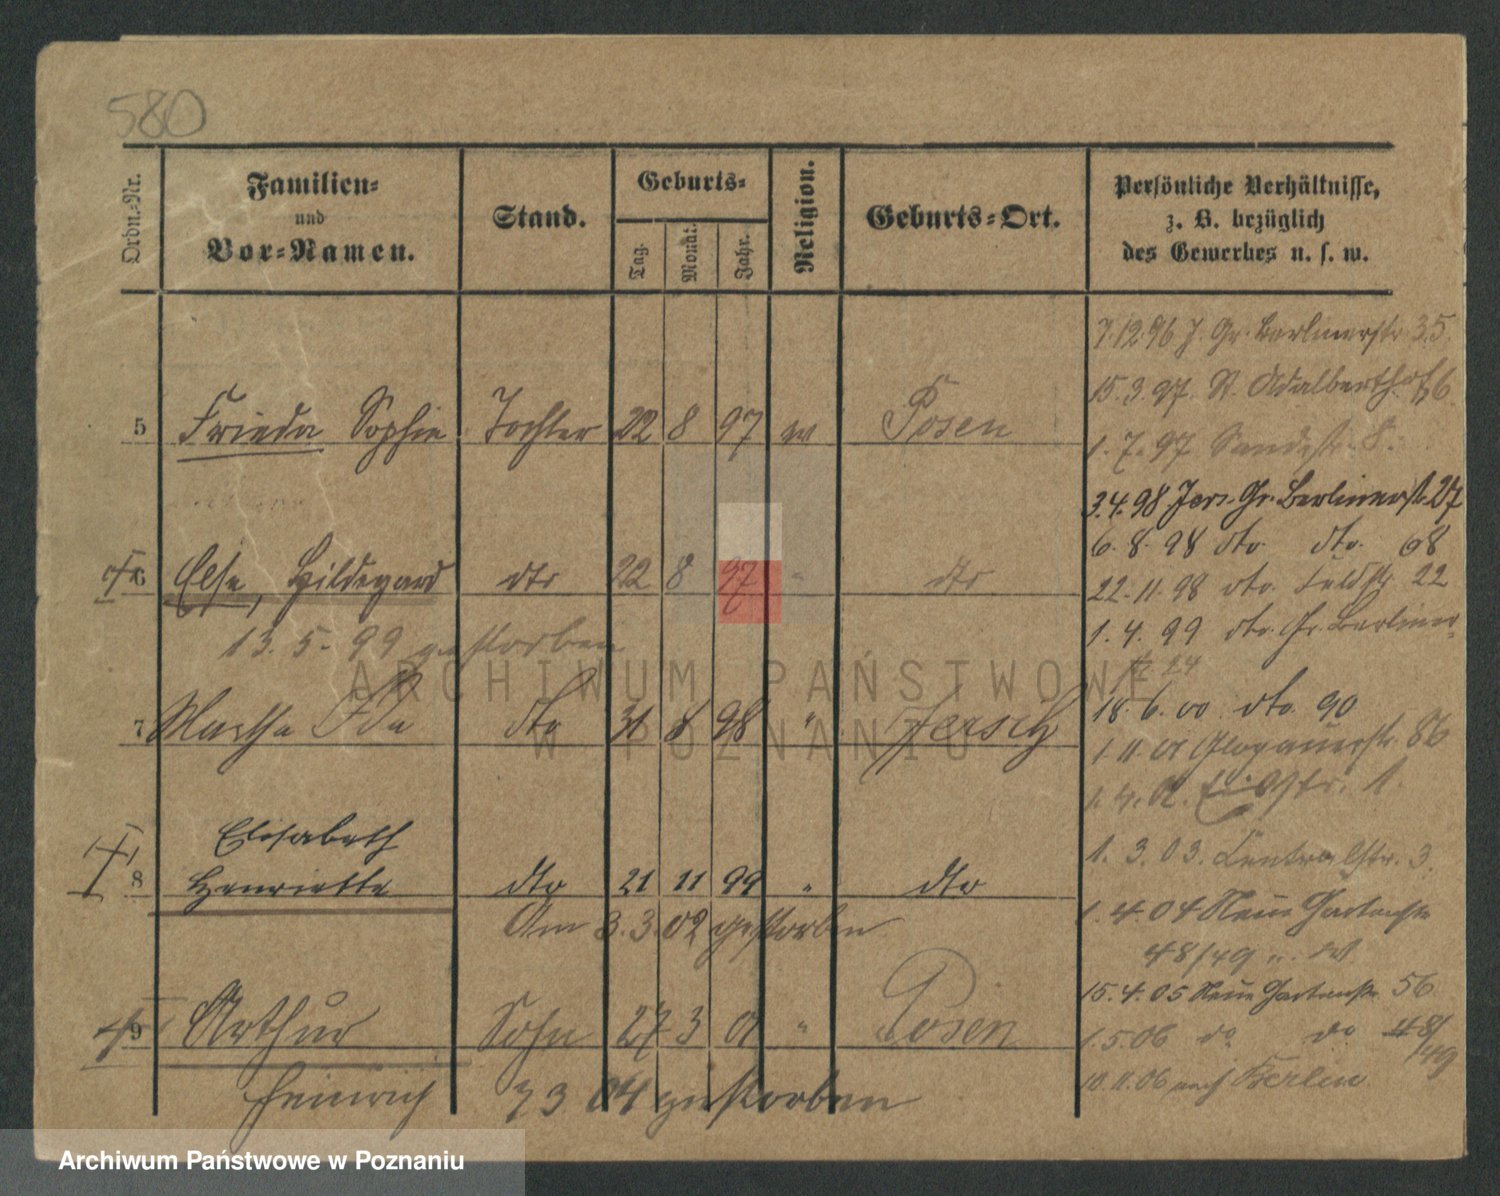 580
Ordn.-Nr.
Familien-
und
Vor-Namen.
Stand.
Geburts-
Tag.
Monat.
Jahr.
Religion.
Geburts-Ort.
Persönliche Verhältnisse,
z. B. bezüglich
des Gewerbes u. s. w.
5 Frieda Sophie Tochter 22 8 97 ev Posen
6 Else, Hildegard dto 22 8 97 " dto
13. 5. 99 gestorben
7 Martha Ida dto 31 8 98 " Jersitz
Elisabeth
8 Henriette dto 21 11 99 " dto
Am 3.3.02 gestorben
9 Arthur Sohn 27 3 01 " Posen
Heinrich 7 3 04 gestorben
7.12.96 J. Gr. Berlinerstr. 35.
15.3.97. St. Adalberthof 6
1.7.97 Sandstr. 8.
3.4.98 Jers. Gr. Berlinerstr. 27
6.8.98 dto. dto. 68
22.11.98 dto. Feldstr. 22
1.4.99 dto. Gr. Berliner-
str 24
18.6.00 dto. 90
1.11.01 Glogauerstr. 86
1.4.02.
1.3.03. Centralstr. 3.
1.4.04 Neue Gartenstr
48/49
15.4.05 Neue Gartenstr 56
1.5.06 do do 48/49
10.11.06 nach Berlin
ARCHIWUM PAŃSTWOWE
W POZNANIU
Archiwum Państwowe w Poznaniu